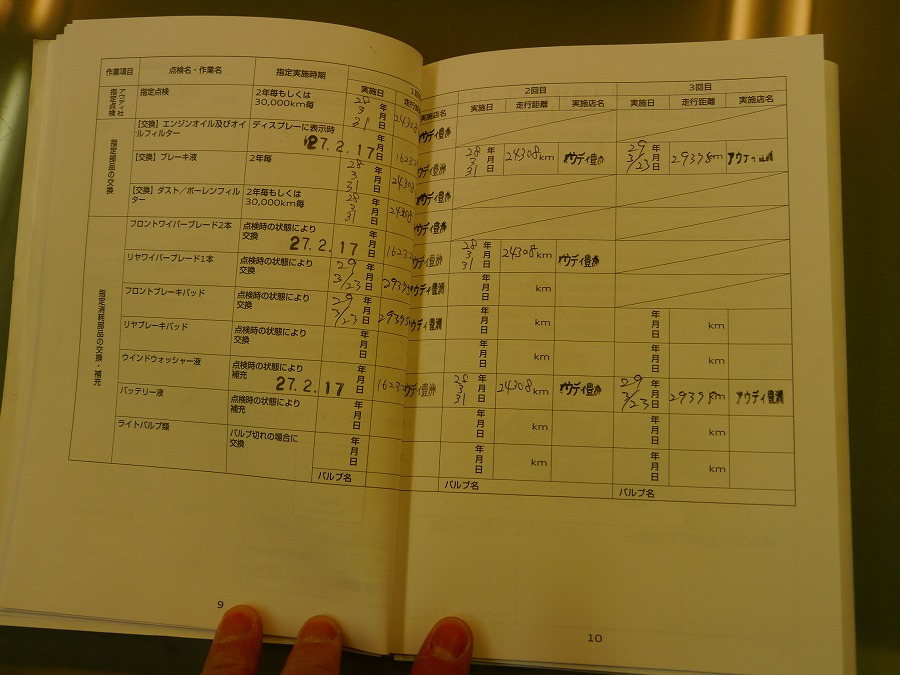 作業項目 点検名・作業名 指定実施時期 実施日
アウディ社指定点検 指定点検 2年毎もしくは
30,000km毎 28年3月31日 24308 アウディ豊洲
指定部品の交換
[交換] エンジンオイル及びオイルフィルター ディスプレーに表示時
27.2.17 年月日
[交換] ブレーキ液 2年毎 28年3月31日 24308 アウディ豊洲
[交換] ダスト/ポーレンフィルター 2年毎もしくは
30,000km毎 28年3月31日 24308 アウディ豊洲
指定消耗部品の交換・補充
フロントワイパーブレード2本 点検時の状態により
交換 27.2.17 年月日
リヤワイパーブレード1本 点検時の状態により
交換 29年3/23月日
フロントブレーキパッド 点検時の状態により
交換 29年3/23月日
リヤブレーキパッド 点検時の状態により
交換 年月日
ウインドウォッシャー液 点検時の状態により
補充 27.2.17 年月日
バッテリー液 点検時の状態により
補充 年月日
ライトバルブ類 バルブ切れの場合に
交換 年月日
バルブ名
9
2回目 3回目
実施店名 実施日 走行距離 実施店名 実施日 走行距離 実施店名
28年3月31日 24308km アウディ豊洲 29年3/23月日 29395km アウディ豊洲
28年3月31日 24308km アウディ豊洲
年月日 km
年月日 km 年月日 km
年月日 km 年月日 km
28年3月31日 24308km アウディ豊洲 29年3/23月日 29395km アウディ豊洲
年月日 km 年月日 km
年月日 km 年月日 km
バルブ名 バルブ名
10